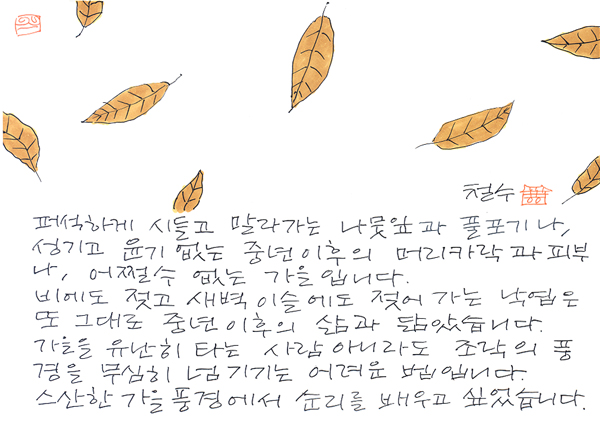 철수
퍼석하게 시들고 말라가는 나뭇잎과 풀포기나,
성기고 윤기 없는 중년이후의 머리카락과 피부
나, 어쩔수 없는 가을입니다.
비에도 젖고 새벽이슬에도 젖어 가는 낙엽은
또 그대로 중년이후의 삶과 닮았습니다.
가을을 유난히 타는 사람 아니라도 조락의 풍
경을 무심히 넘기기는 어려운 법입니다.
스산한 가을풍경에서 순리를 배우고 싶었습니다.